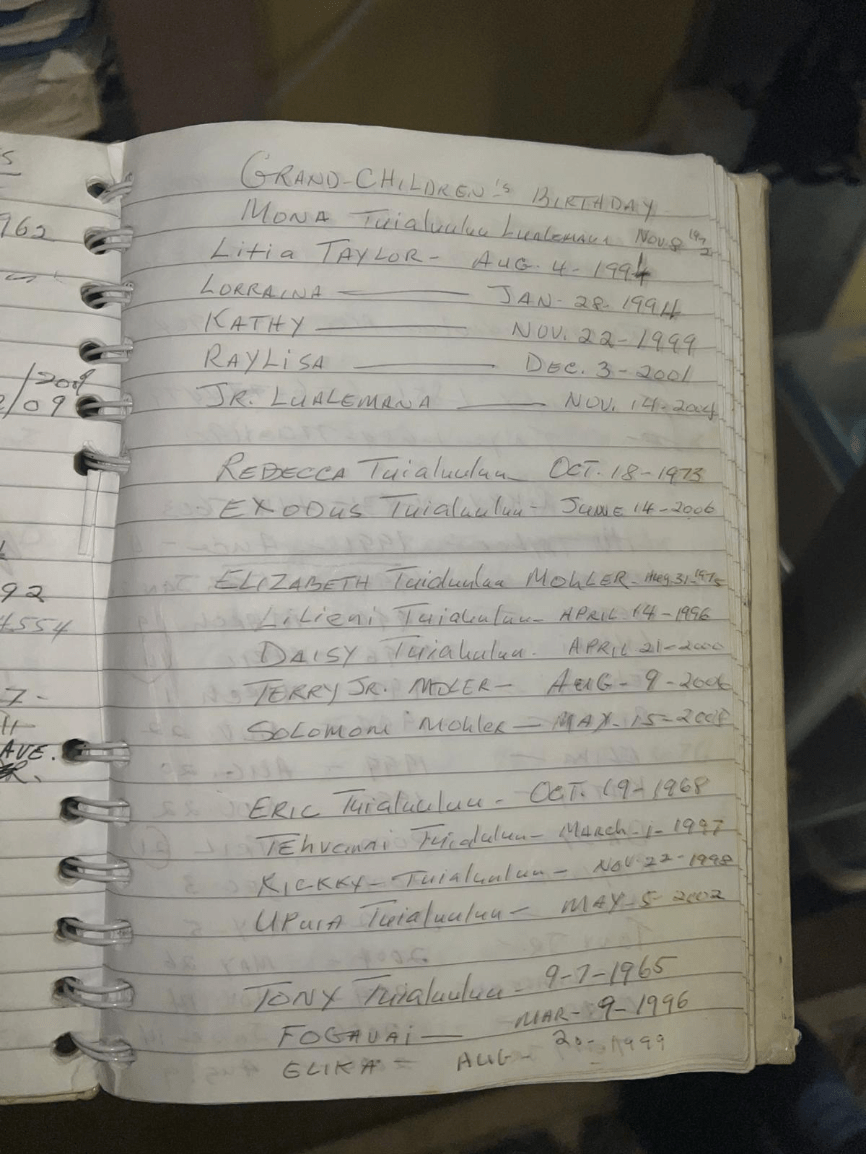 s
962
/2009
/09
92
4554
7-
AVE.
GRAND-CHILDREN'S BIRTHDAY
MONA Tuialuuluu Lualemana NOV. 8 197
LITIA TAYLOR- AUG. 4-1994
LORRAINA — JAN. 28. 1994
KATHY — NOV. 22-1999
RAYLISA — DEC. 3-2001
JR. LUALEMANA — NOV. 14-2004
REBECCA Tuialuuluu OCT. 18-1973
EXODUS Tuialuuluu- JUNE 14-2006
ELIZABETH Tuialuuluu MOHLER- Aug. 31-1975
Lilieni Tuialuuluu- APRIL 14-1996
DAISY Tuialuuluu. APRIL 21-2000
TERRY JR. MOLER- AUG- 9-2006
SOLOMONI Mohler- MAY-15-2008
ERIC Tuialuuluu- OCT. 19-1968
Tuialuuluu- MARCH-1-1997
KICKKY- Tuialuuluu- NOV-22-1998
UPUIA Tuialuuluu- MAY-5-2002
TONY Tuialuuluu- 9-7-1965
FOGAVAI — MAR-9-1996
ELIKA - AUG- 20-1999